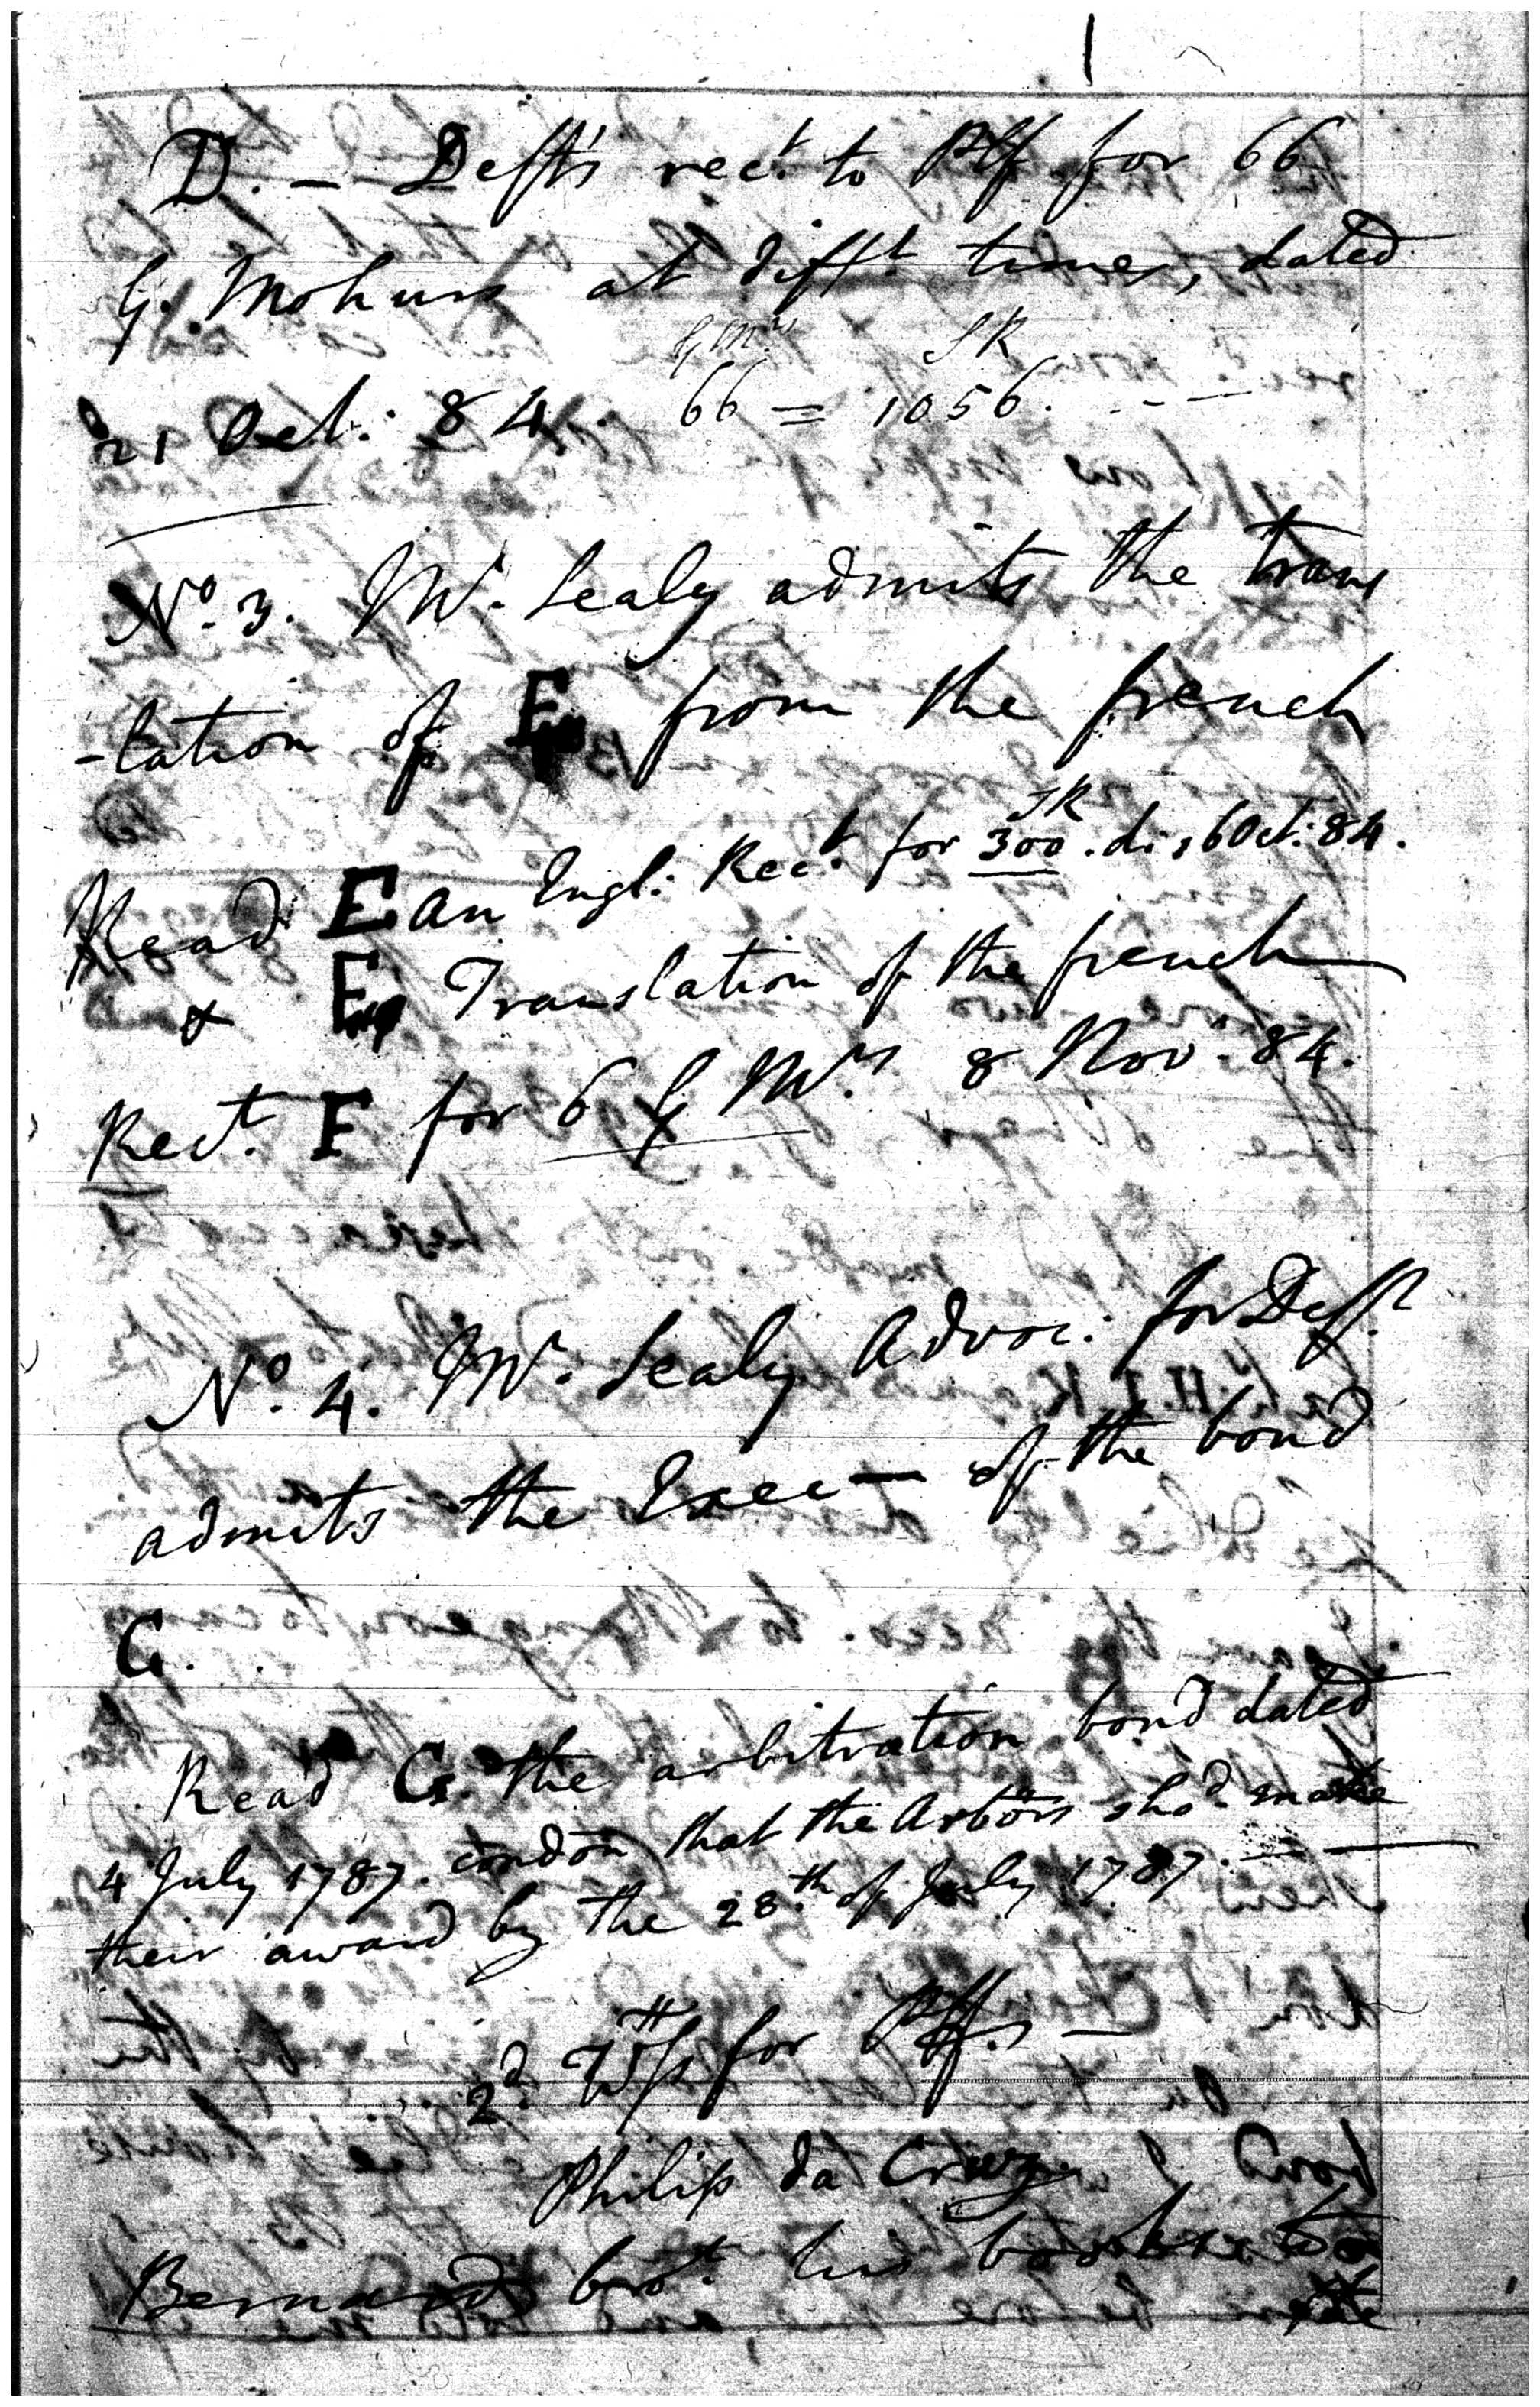 D. – Deft's rec.t to Plf for 66
G. Mohurs at diff.t times, dated
G M.rs SR
21 Oct: 84. 66 = 1056. - - —
No. 3. Mr. Sealy admits the trans
-lation of E from the french
SR
Read E an Engl: Rec.t for 300. d. 16 Oct: 84.
& E Translation of the french
Rect. F for 6 G Mrs. 8 Nov. 84.
No. 4. Mr. Sealy Advoc: for Deft.
admits the Exec— of the bond
G.
Read G. the arbitration bond dated
4 July 1787. condon that the Arbors sho.d make
their award by the 28.th of July 1787. — —
2.d Wits for Plff. —
Philip da Cruz
Bernard bro.t his books to